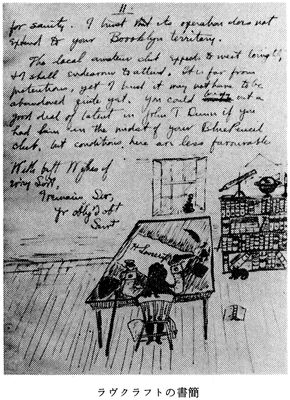 11
for sanity. I trust that its operation does not
extend to your Boooklyn territory.
The local amateur club expects to meet tonight,
& I shall endeavour to attend. It is far from
pretentious, yet I trust it may not have to be
abandoned quite yet. You could bring out a
good deal of latent in John T. Dunn if you
had him in the midst of your Blue Pencil
club, but conditions here are less favourable
With best Wishes of
every Sort,
I remain, Sir,
Yr Obt
Servt
H Lovecraft
ラヴクラフトの書簡